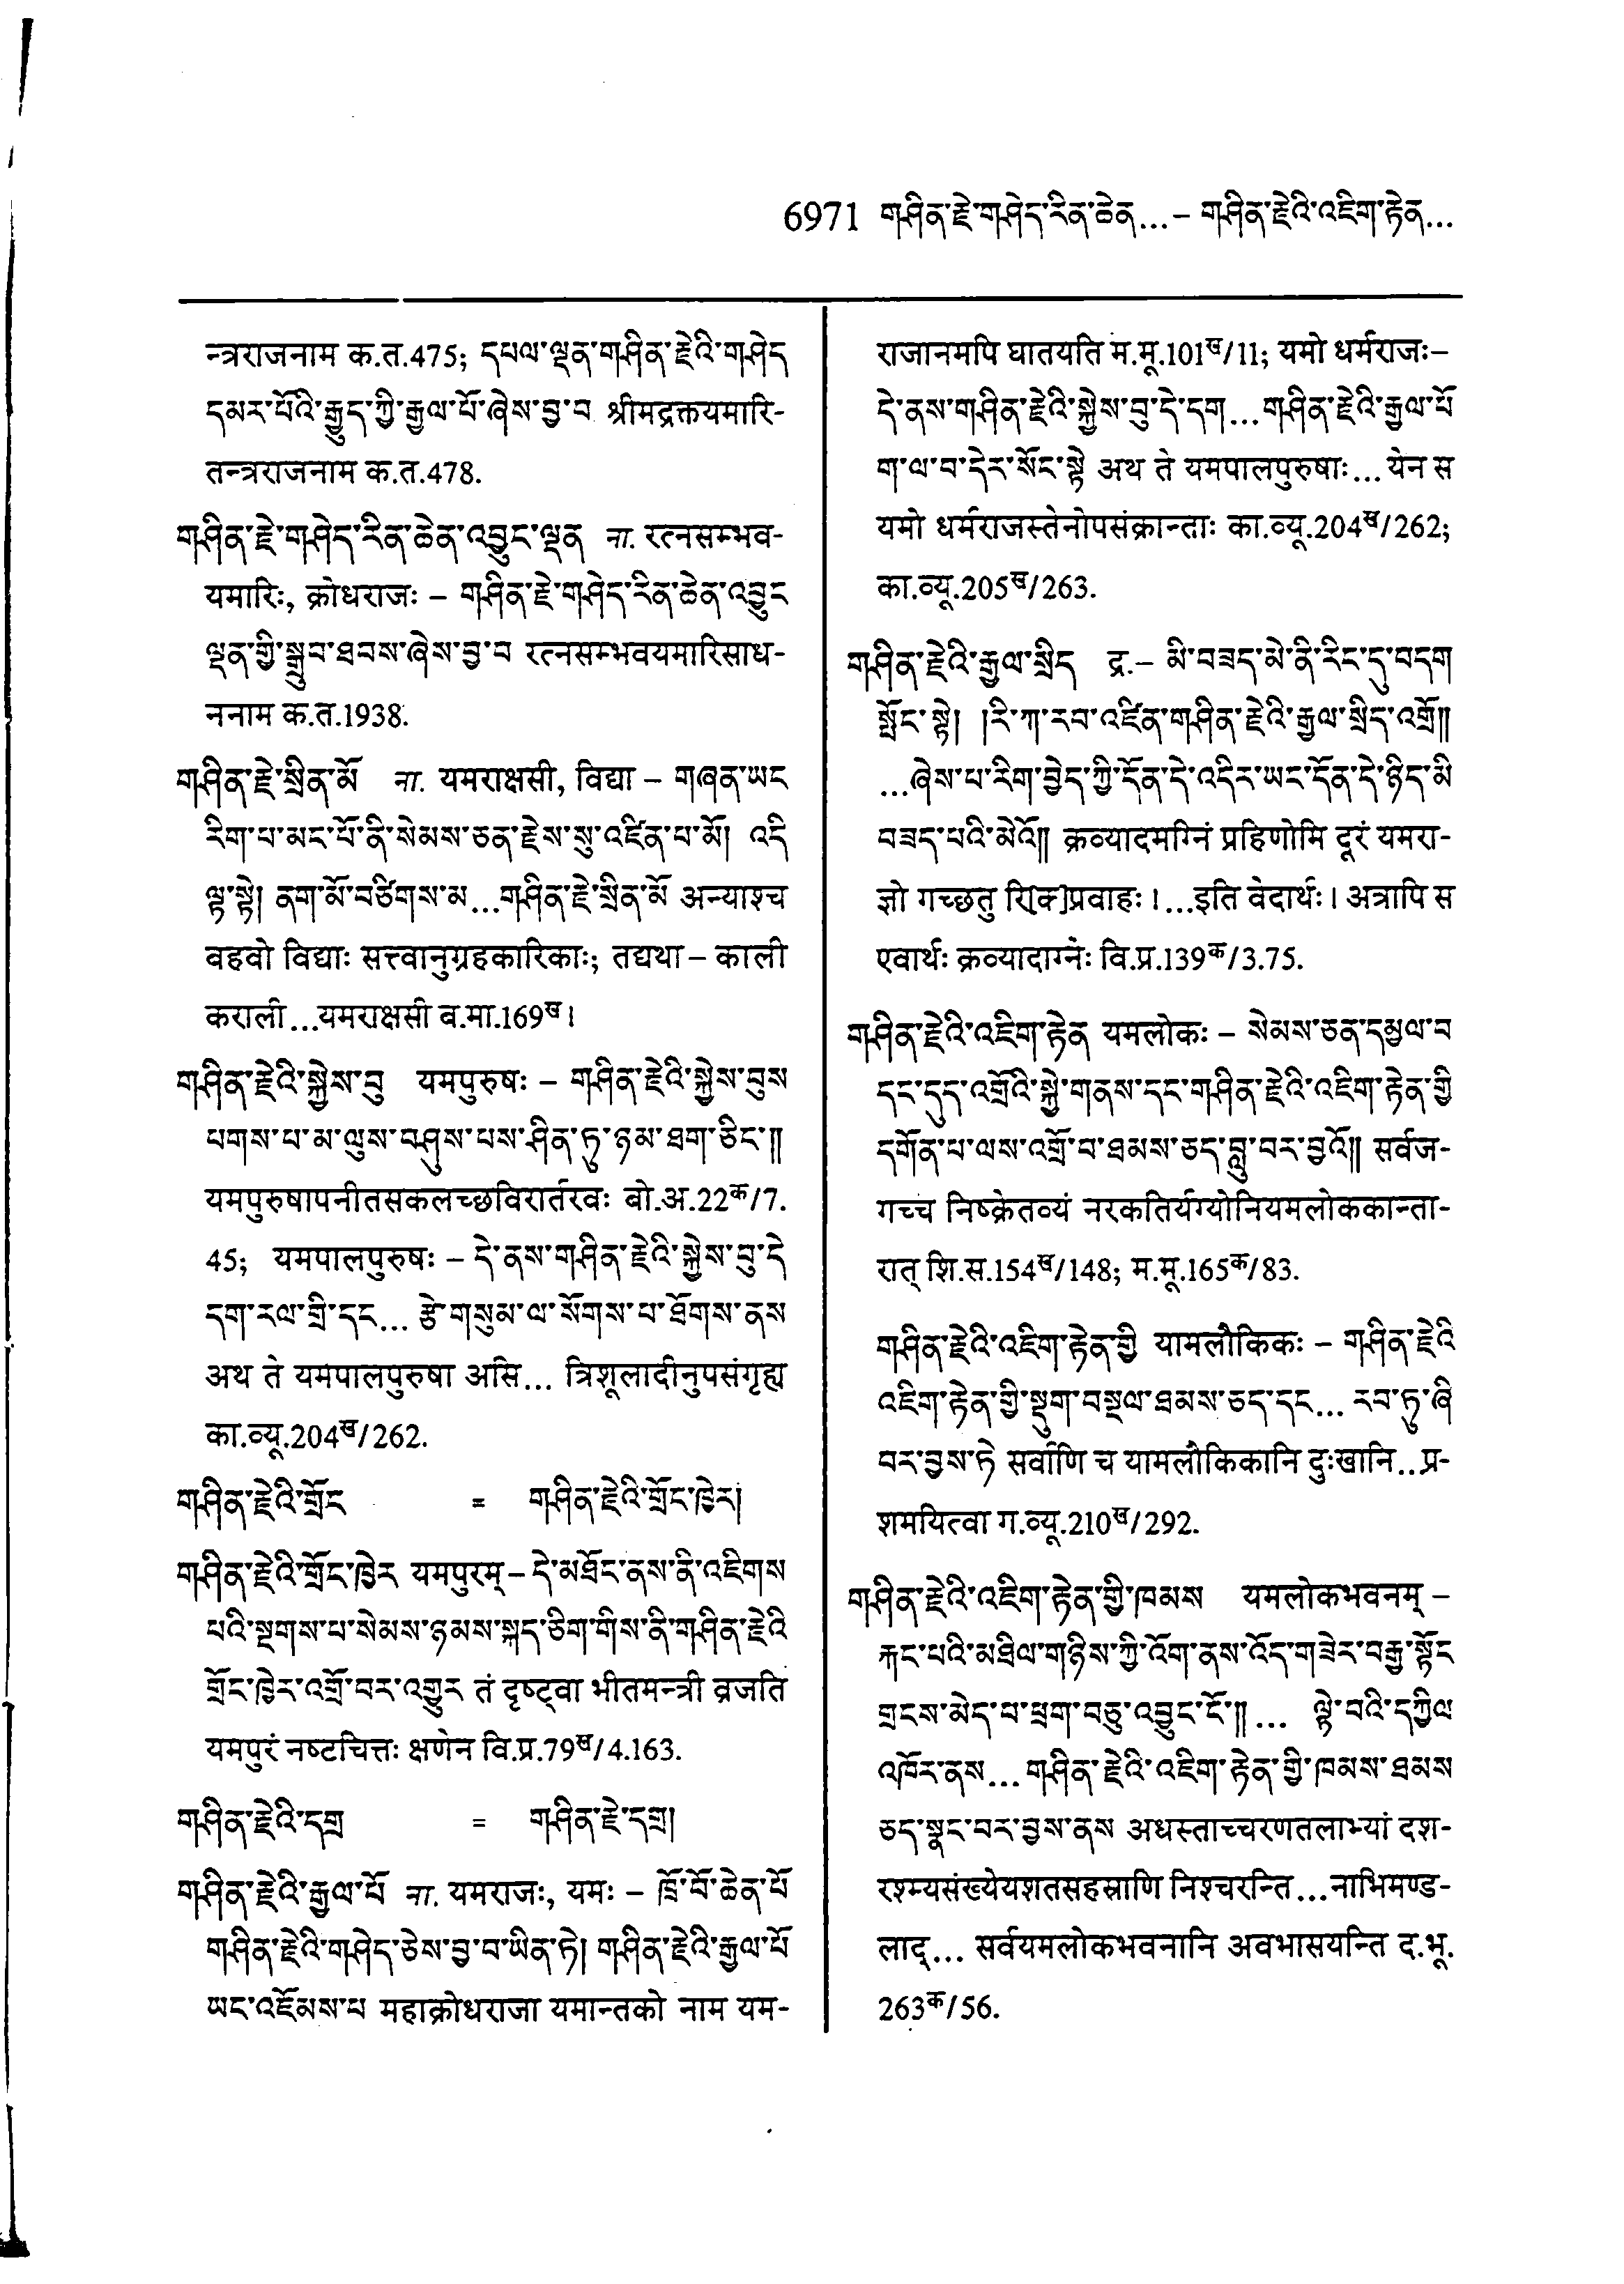 6971 གཤིན་རྗེ་གཤེད་རིན་ཆེན...– གཤིན་རྗེའི་འཇིག་རྟེན...
न्त्रराजनाम क.त.475; དཔལ་ལྡན་གཤིན་རྗེའི་གཤེད
དམར་པོའི་རྒྱུད་ཀྱི་རྒྱལ་པོ་ཞེས་བྱ་བ श्रीमद्रक्तयमारि-
तन्त्रराजनाम क.त.478.
གཤིན་རྗེ་གཤེད་རིན་ཆེན་འབྱུང་ལྡན ना. रत्नसम्भव-
यमारिः, क्रोधराजः – གཤིན་རྗེ་གཤེད་རིན་ཆེན་འབྱུང
ལྡན་གྱི་སྒྲུབ་ཐབས་ཞེས་བྱ་བ रत्नसम्भवयमारिसाध-
ननाम क.त.1938.
གཤིན་རྗེ་སྲིན་མོ ना. यमराक्षसी, विद्या – གཞན་ཡང
རིག་པ་མང་པོ་ནི་སེམས་ཅན་རྗེས་སུ་འཛིན་པ་མོ། འདི
ལྟ་སྟེ། ནག་མོ་བཙིགས་མ...གཤིན་རྗེ་སྲིན་མོ अन्याश्च
वहवो विद्याः सत्त्वानुग्रहकारिकाः; तद्यथा – काली
कराली...यमराक्षसी व.मा.169ख।
གཤིན་རྗེའི་སྐྱེས་བུ यमपुरुषः – གཤིན་རྗེའི་སྐྱེས་བུས
པགས་པ་མ་ལུས་བཤུས་པས་ཤིན་ཏུ་ཉམ་ཐག་ཅིང་༎
यमपुरुषापनीतसकलच्छविरार्तरवः बो.अ.22क/7.
45; यमपालपुरुषः – དེ་ནས་གཤིན་རྗེའི་སྐྱེས་བུ་དེ
དག་རལ་གྲི་དང... རྩེ་གསུམ་ལ་སོགས་པ་ཐོགས་ནས
अथ ते यमपालपुरुषा असि... त्रिशूलादीनुपसंगृह्य
का.व्यू.204ख/262.
གཤིན་རྗེའི་གྲོང = གཤིན་རྗེའི་གྲོང་ཁྱེར།
གཤིན་རྗེའི་གྲོང་ཁྱེར यमपुरम् – དེ་མཐོང་ནས་ནི་འཇིགས
པའི་སྔགས་པ་སེམས་ཉམས་སྐད་ཅིག་གིས་ནི་གཤིན་རྗེའི
གྲོང་ཁྱེར་འགྲོ་བར་འགྱུར तं दृष्ट्वा भीतमन्त्री व्रजति
यमपुरं नष्टचित्तः क्षणेन वि.प्र.79ख/4.163.
གཤིན་རྗེའི་དགྲ = གཤིན་རྗེ་དགྲ།
གཤིན་རྗེའི་རྒྱལ་པོ ना. यमराजः, यमः – ཁྲོ་བོ་ཆེན་པོ
གཤིན་རྗེའི་གཤེད་ཅེས་བྱ་བ་ཡིན་ཏེ། གཤིན་རྗེའི་རྒྱལ་པོ
ཡང་འཇོམས་པ महाक्रोधराजा यमान्तको नाम यम-
राजानमपि घातयति म.मू.101ख/11; यमो धर्मराजः–
དེ་ནས་གཤིན་རྗེའི་སྐྱེས་བུ་དེ་དག...གཤིན་རྗེའི་རྒྱལ་པོ
ག་ལ་བ་དེར་སོང་སྟེ अथ ते यमपालपुरुषाः...येन स
यमो धर्मराजस्तेनोपसंक्रान्ताः का.व्यू.204ख/262;
का.व्यू.205ख/263.
གཤིན་རྗེའི་རྒྱལ་སྲིད द्र.– མི་བཟད་མེ་ནི་རིང་དུ་བདག
སྤོང་སྟེ། །རི་ཀ་རབ་འཛིན་གཤིན་རྗེའི་རྒྱལ་སྲིད་འགྲོ༎
...ཞེས་པ་རིག་བྱེད་ཀྱི་དོན་དེ་འདིར་ཡང་དོན་དེ་ཉིད་མི
བཟད་པའི་མེའོ༎ क्रव्यादमग्निं प्रहिणोमि दूरं यमरा-
ज्ञो गच्छतु रि[क]प्रवाहः।...इति वेदार्थः। अत्रापि स
एवार्थः क्रव्यादाग्नेः वि.प्र.139क/3.75.
གཤིན་རྗེའི་འཇིག་རྟེན यमलोकः – སེམས་ཅན་དམྱལ་བ
དང་དུད་འགྲོའི་སྐྱེ་གནས་དང་གཤིན་རྗེའི་འཇིག་རྟེན་གྱི
དགོན་པ་ལས་འགྲོ་བ་ཐམས་ཅད་བླུ་བར་བྱའོ༎ सर्वज-
गच्च निष्क्रेतव्यं नरकतिर्यग्योनियमलोककान्ता-
रात् शि.स.154ख/148; म.मू.165क/83.
གཤིན་རྗེའི་འཇིག་རྟེན་གྱི यामलौकिकः – གཤིན་རྗེའི
འཇིག་རྟེན་གྱི་སྡུག་བསྔལ་ཐམས་ཅད་དང... རབ་ཏུ་ཞི
བར་བྱས་ཏེ सर्वाणि च यामलौकिकानि दुःखानि..प्र-
शमयित्वा ग.व्यू.210ख/292.
གཤིན་རྗེའི་འཇིག་རྟེན་གྱི་ཁམས यमलोकभवनम् –
རྐང་པའི་མཐིལ་གཉིས་ཀྱི་འོག་ནས་འོད་གཟེར་བརྒྱ་སྟོང
གྲངས་མེད་པ་ཕྲག་བཅུ་འབྱུང་ངོ་༎... ལྟེ་བའི་དཀྱིལ
འཁོར་ནས... གཤིན་རྗེའི་འཇིག་རྟེན་གྱི་ཁམས་ཐམས
ཅད་སྣང་བར་བྱས་ནས अधस्ताच्चरणतलाभ्यां दश-
रश्म्यसंख्येयशतसहस्राणि निश्चरन्ति...नाभिमण्ड-
लाद्... सर्वयमलोकभवनानि अवभासयन्ति द.भू.
263क/56.